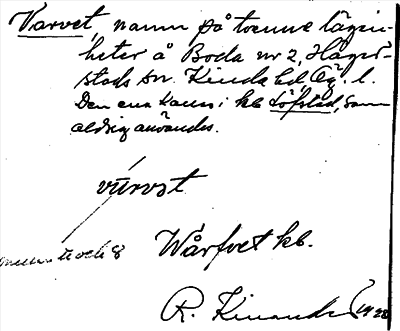 Varvet, namn på tvenne lägen-
heter å Boda nr 2, Häger-
stads sn. Kinda hd, Ög. l.
Den ena kallas i kb Löfstad, som
aldrig användes.
vürvət
Wårfvet kb.
R. Kinander